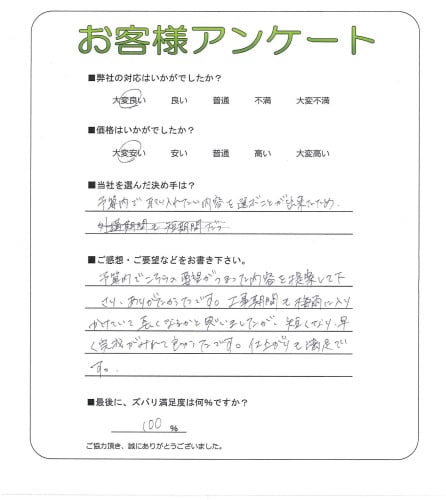 お客様アンケート
■弊社の対応はいかがでしたか？
大変良い 良い 普通 不満 大変不満
■価格はいかがでしたか？
大変安い 安い 普通 高い 大変高い
■当社を選んだ決め手は？
予算内で取り入れたい内容を選ぶことが出来たため。
■ご感想・ご要望などをお書き下さい。
予算内でこちらの要望がつまった内容を提案して下
さり、ありがたかったです。工事期間も梅雨に入り
かけていて長くなるかと思いましたが、短くなり、早
く完成がみれて良かったです。仕上がりも満足で
す。
■最後に、ズバリ満足度は何％ですか？
100 %
ご協力頂き、誠にありがとうございました。